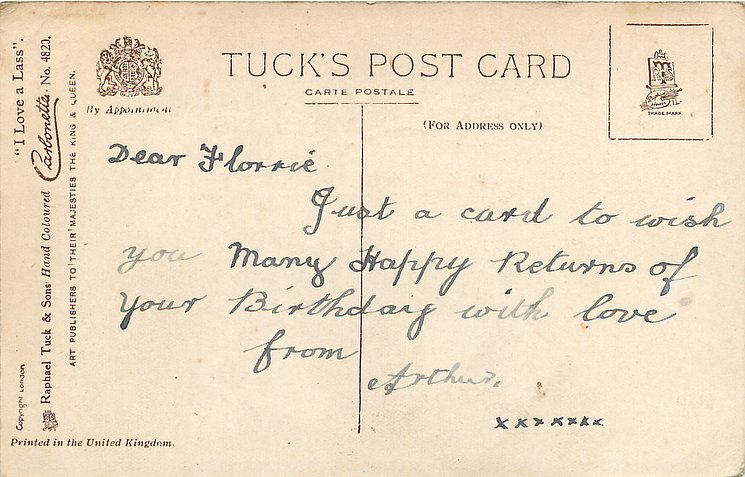 "I Love a Lass".
Raphael Tuck & Sons' Hand Coloured Carbonette No. 4820.
ART PUBLISHERS TO THEIR MAJESTIES THE KING & QUEEN.
Copyright London
By Appointment
TUCK'S POST CARD
CARTE POSTALE
(FOR ADDRESS ONLY)
TRADE MARK
Dear Florrie
Just a card to wish
you Many Happy Returns of
Your Birthdaiy with love
from
Arthur.
x x x x x x x
Printed in the United Kingdom.